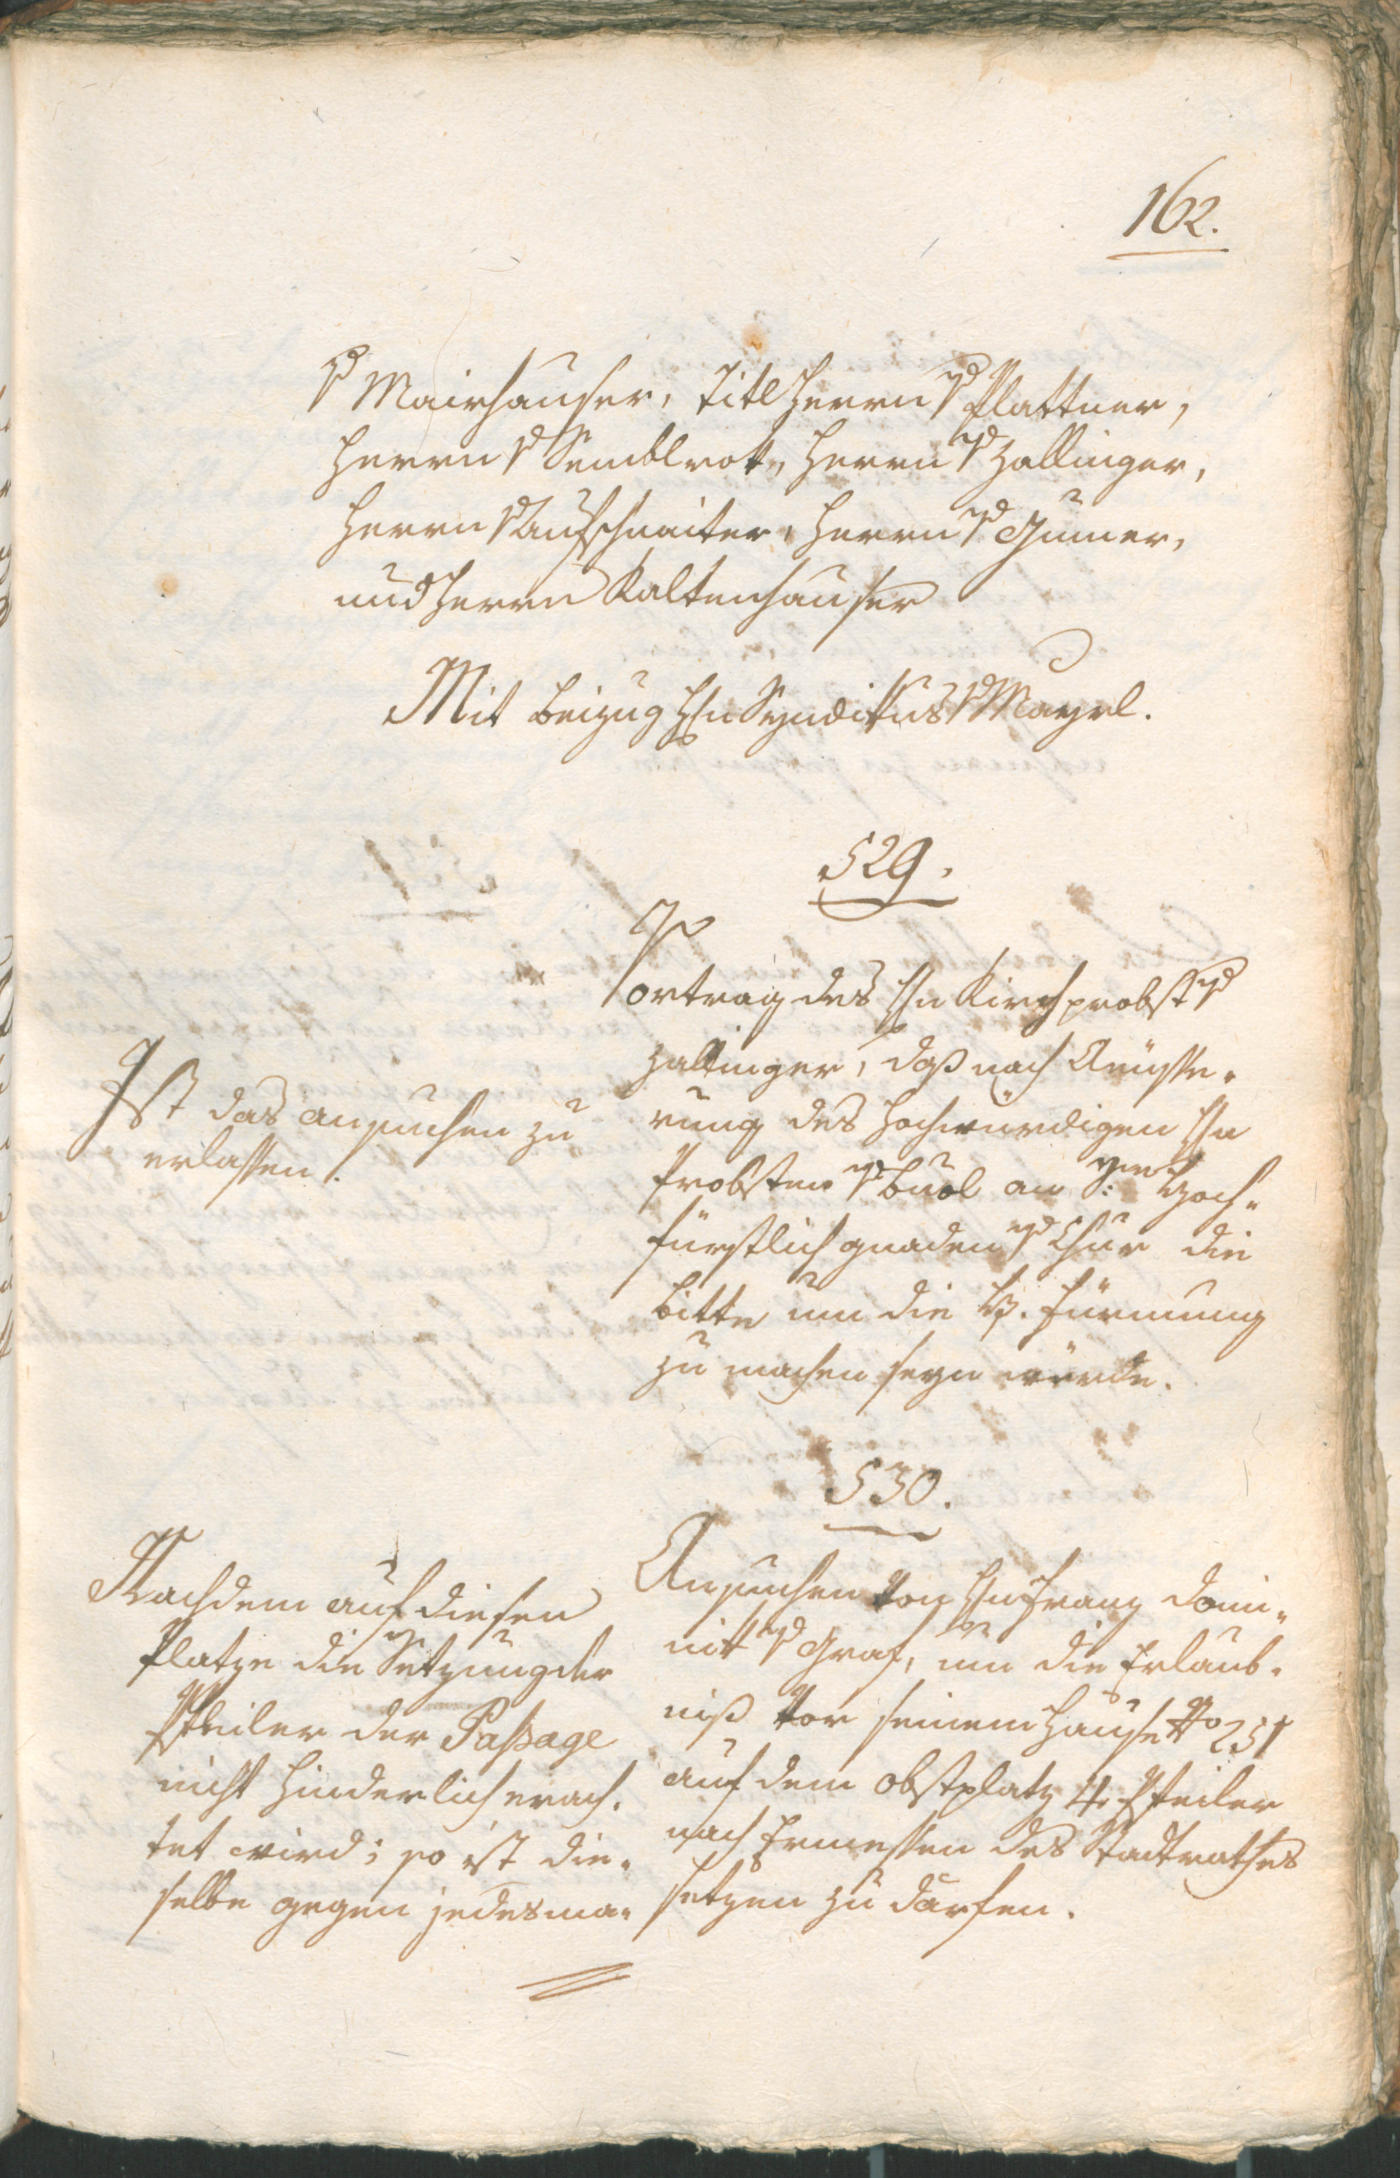 162.
v Mairhauser, Titl Herrn v Plattner,
Herrn v Semblrok, Herrn v Zallinger,
Herrn v Aufschnaiter, Herrn v Gumer,
und Herrn Kaltenhauser
Mit beizug H Syndikus v Mayrl.
529.
Vortrag des Hn Kirchprobst v
Zallinger, daß nach Aeusse-
rung des hochwürdigen Hn
Probsten v Buol an Sr Hoch-
fürstlich gnaden v Chur die
bitte um die H. Fürmung
zu machen seyn würde.
Ist das ansuchen zu
erlassen.
530.
Ansuchen von Hn Franz Domi-
nik v Graf, um die Erlaub-
niß vor seinem Hause No 251
auf dem obstplatz 4 Pfeiler
nach Ermessen des Stadtrathes
setzen zu därfen.
Nachdem auf diesen
Platze die Setzung der
Pfeiler der Passage
nicht hinderlich erach-
tet wird; so ist die-
selbe gegen jedesma-